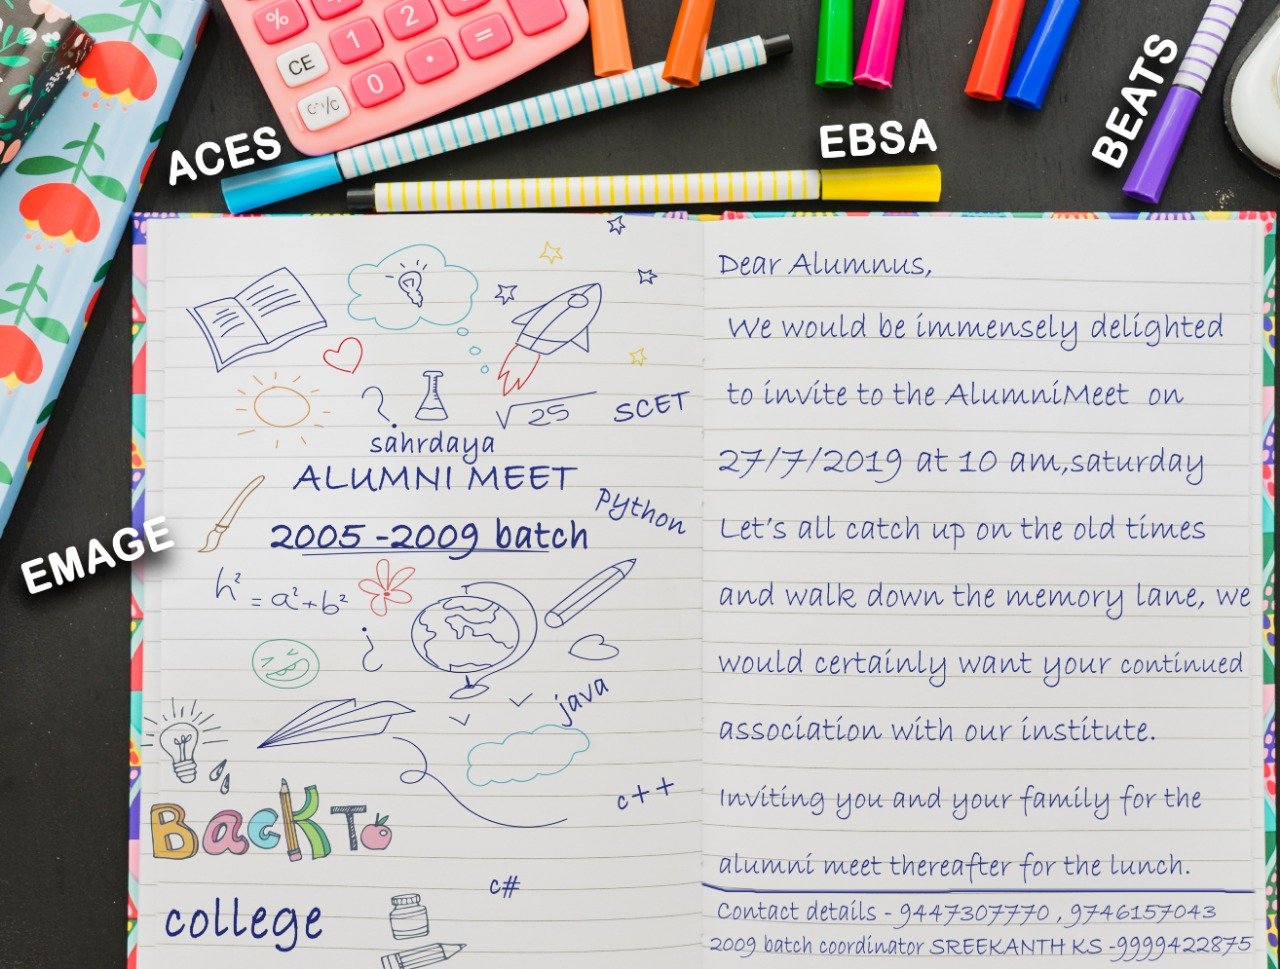 %
CE
1
2
=
0
.
ACES
EBSA
BEATS
EMAGE
√25
SCET
sahrdaya
ALUMNI MEET
Python
2005 -2009 batch
h² = a²+b²
java
c++
BACK TO
c#
college
Dear Alumnus,
We would be immensely delighted
to invite to the AlumniMeet on
27/7/2019 at 10 am,saturday
Let's all catch up on the old times
and walk down the memory lane, we
would certainly want your continued
association with our institute.
Inviting you and your family for the
alumni meet thereafter for the lunch.
Contact details - 9447307770 , 9746157043
2009 batch coordinator SREEKANTH KS -9999422875